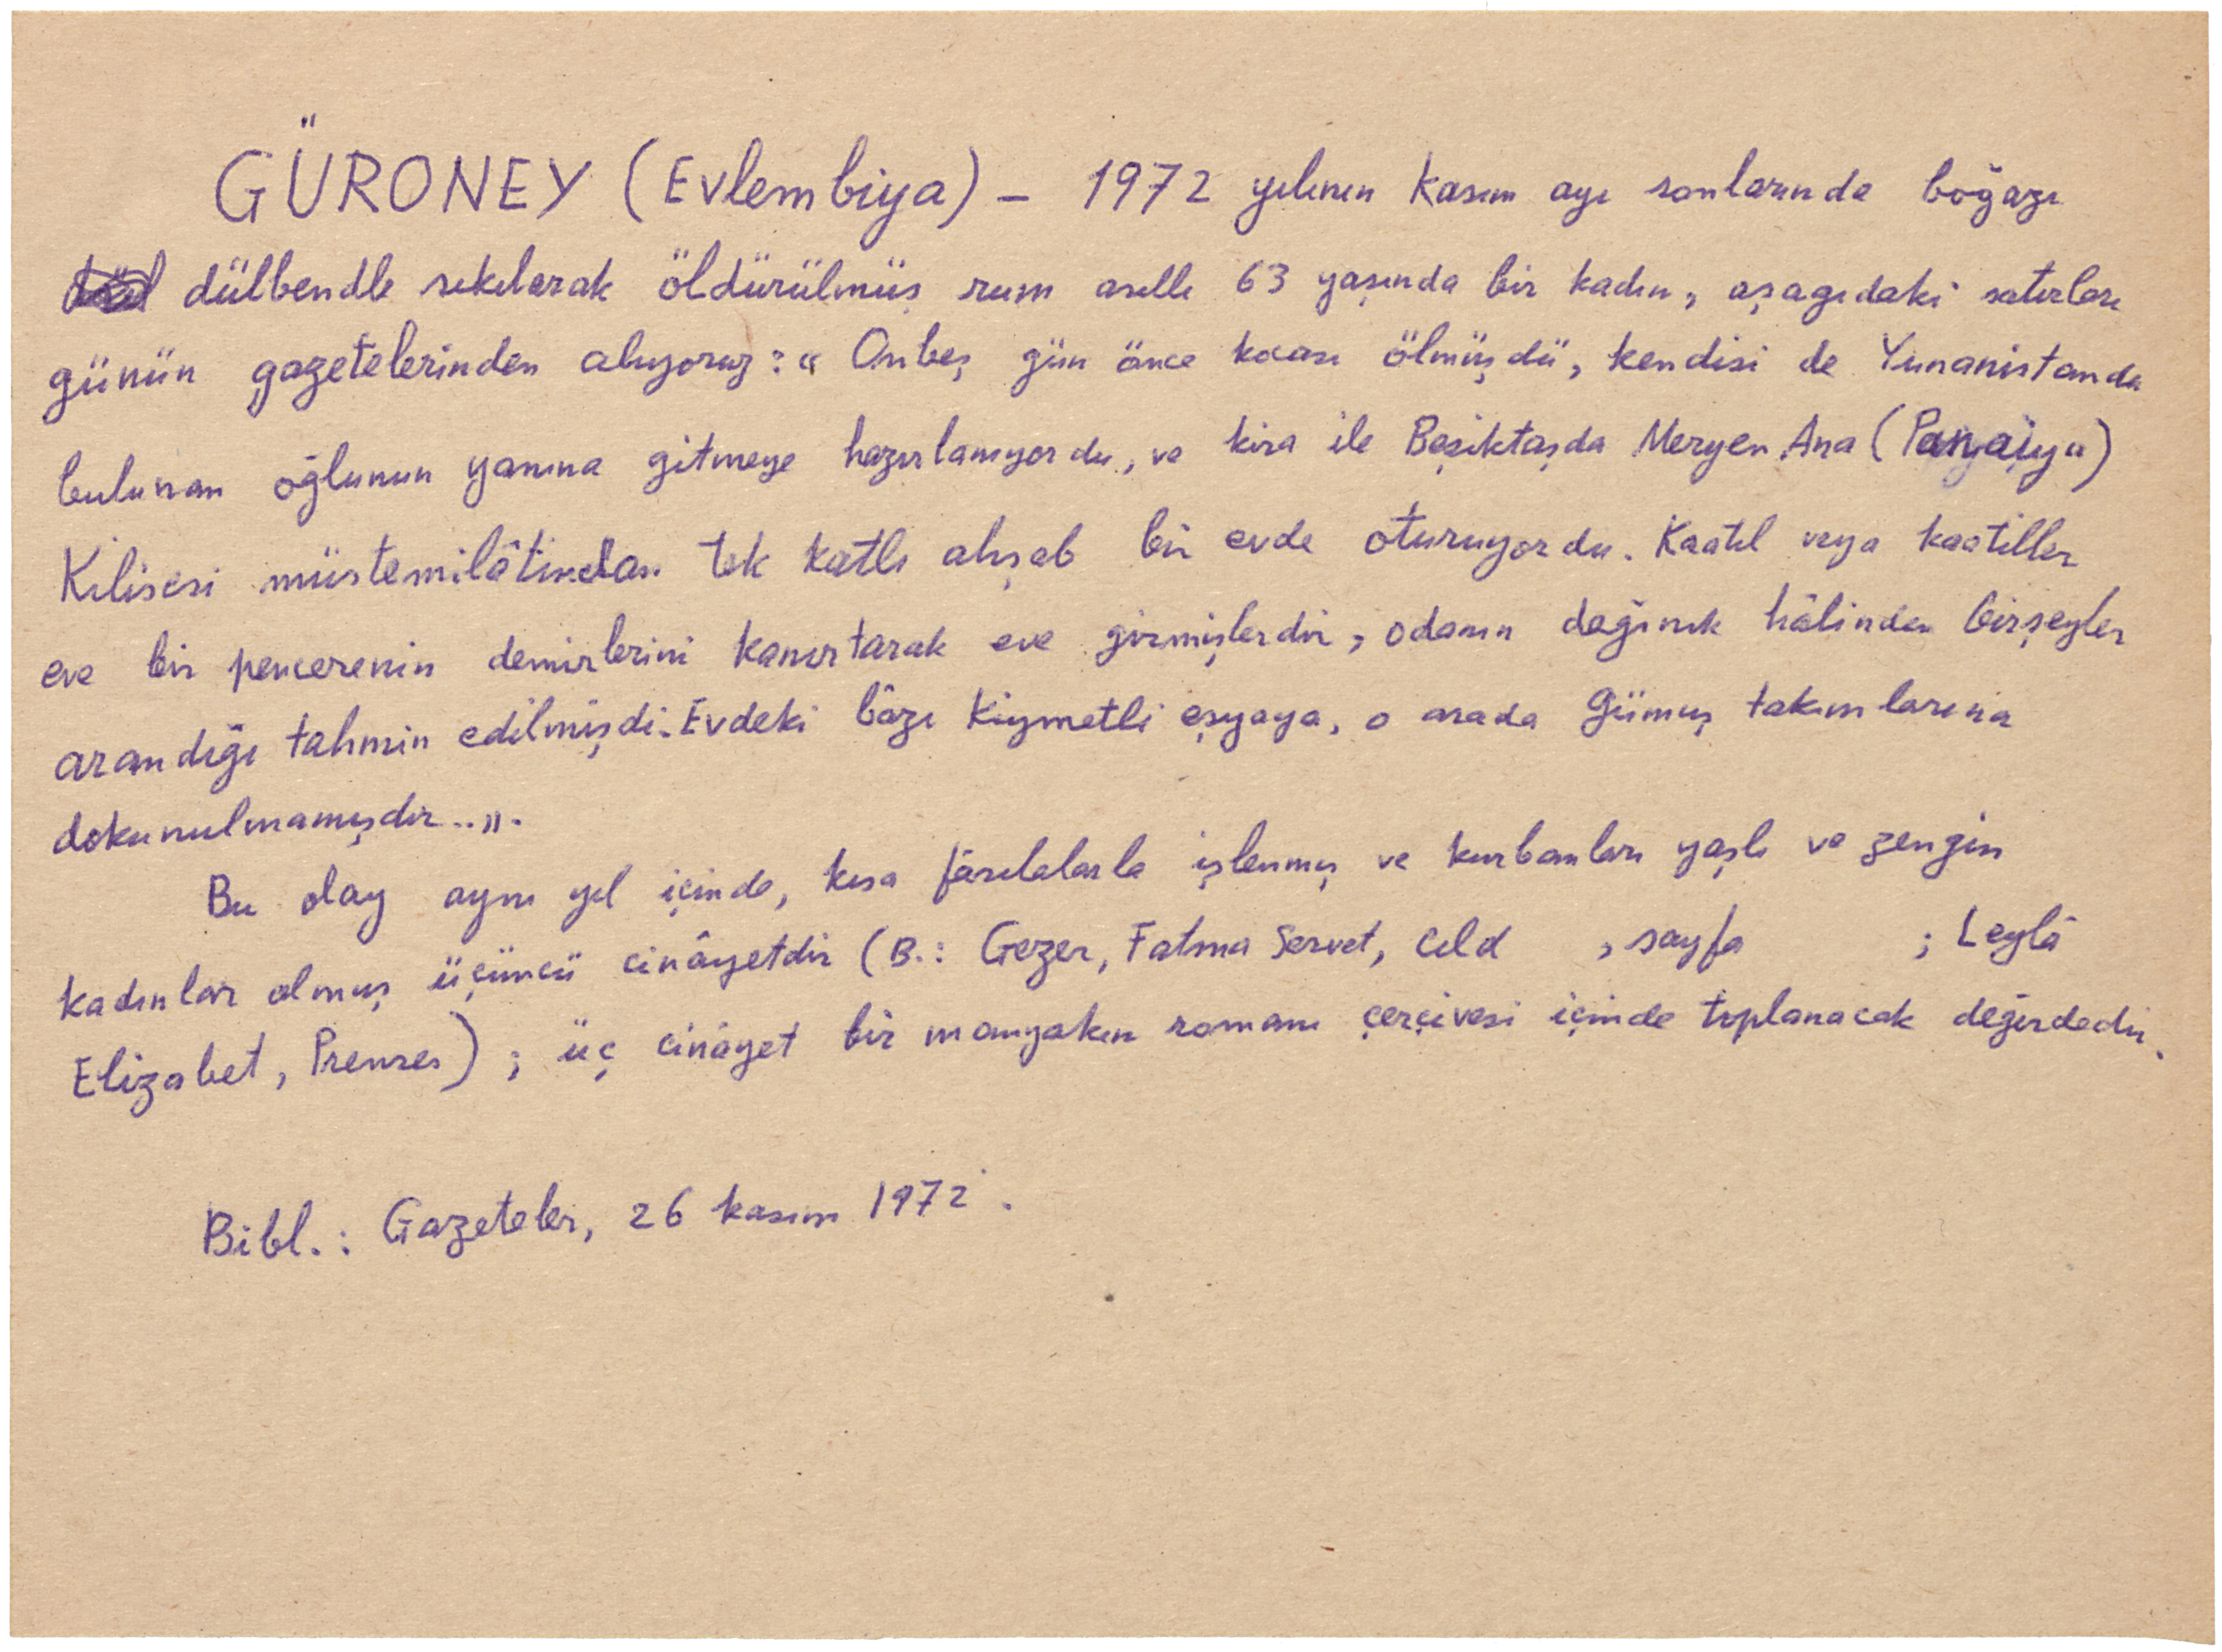 GÜRONEY (Evlembiya) – 1972 yılının Kasım ayı sonlarında boğazı
dülbendle sıkılarak öldürülmüş rum asıllı 63 yaşında bir kadın, aşagıdaki satırları
günün gazetelerinden alıyoruz: « Onbeş gün önce kocası ölmüşdü, kendisi de Yunanistanda
bulunan oğlunun yanına gitmeye hazırlanıyordu, ve kira ile Beşiktaşda Meryen Ana (Panaiya)
Kilisesi müştemilâtından tek katlı ahşab bir evde oturuyordu. Kaatil veya kaatiller
eve bir pencerenin demirlerini kanırtarak eve girmişlerdir, odanın dağınık hâlinden birşeyler
arandığı tahmin edilmişdi. Evdeki bâzı kıymetli eşyaya, o arada gümüş takımlarına
dokunulmamışdır..».
Bu olay aynı yıl içinde, kısa fâsılalarla işlenmiş ve kurbanları yaşlı ve zengin
kadınlar olmuş üçüncü cinâyetdir (B.: Gezer, Fatma Servet, cild , sayfa ; Leylâ
Elizabet, Prenses) ; üç cinâyet bir manyakın romanı çerçivesi içinde toplanacak değerdedir.
Bibl.: Gazeteler, 26 kasım 1972.